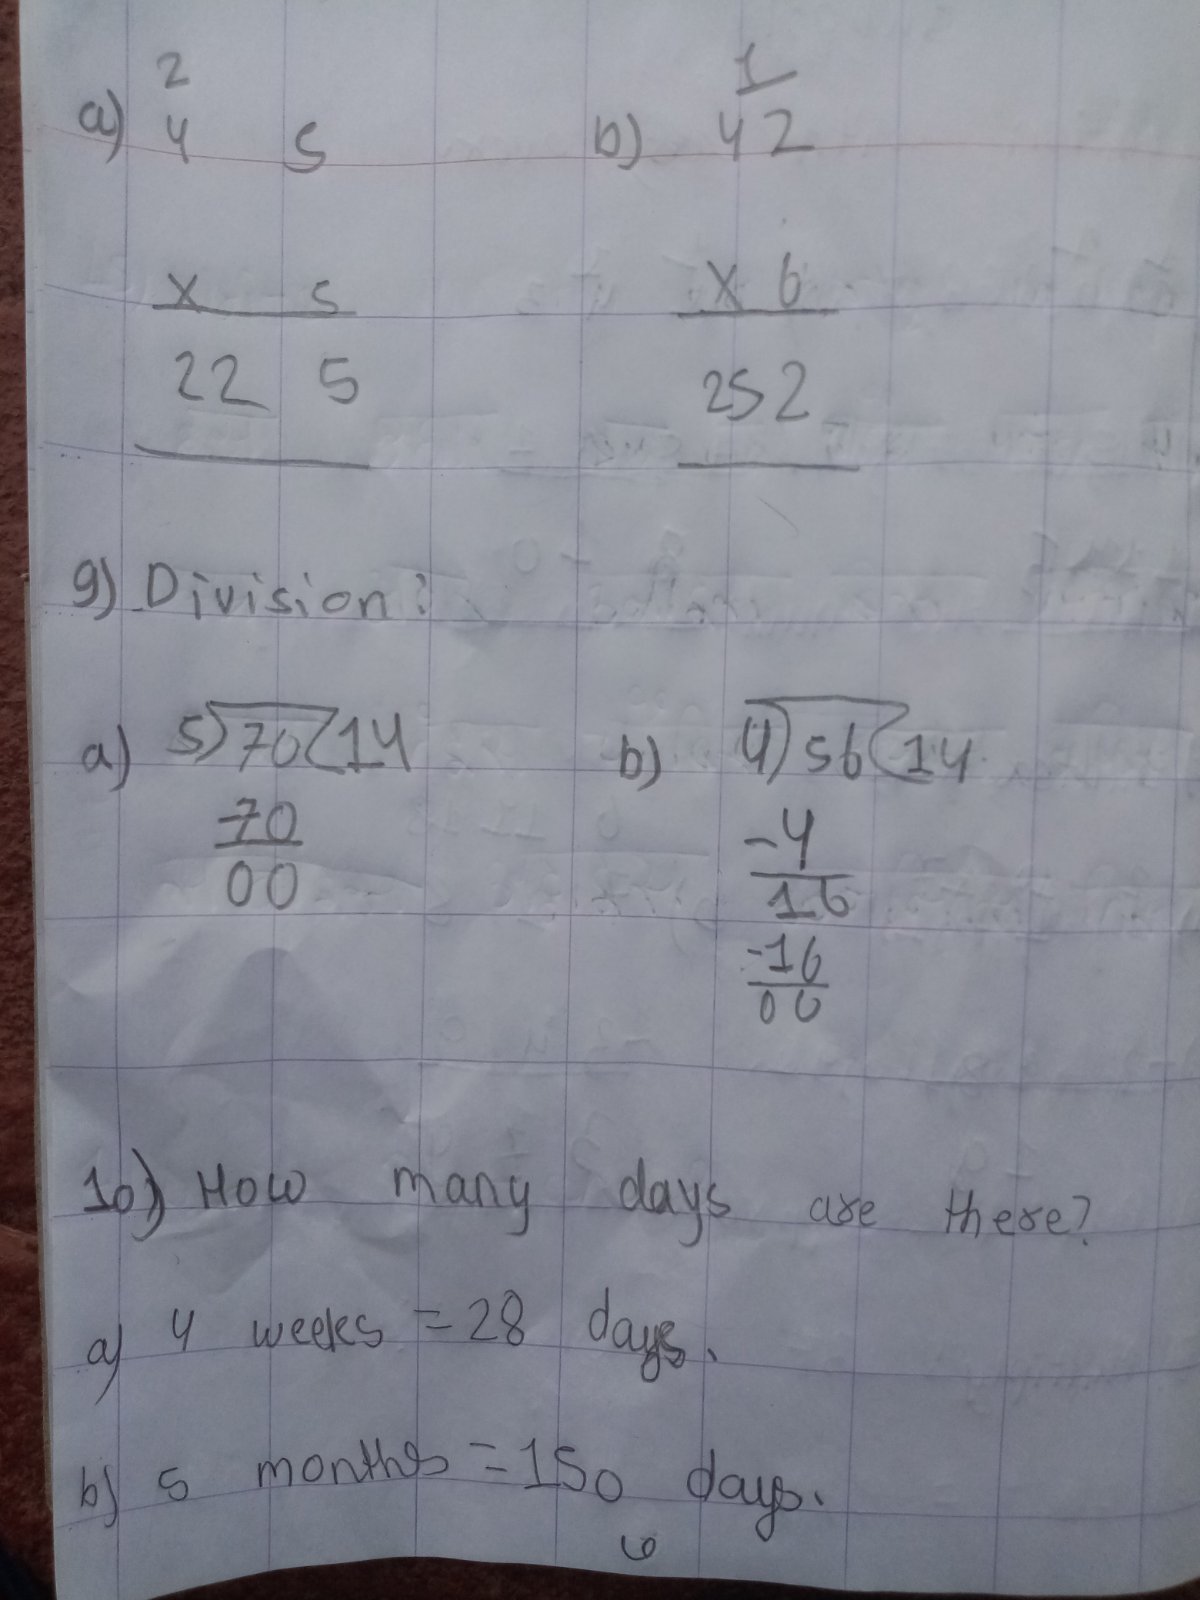 2 1
a) 4 5 b) 42
x 5 x 6
22 5 252
9) Division:
a) 5)70(14 b) 4)56(14
70 -4
00 16
-16
00
10) How many days are there?
a) 4 weeks = 28 days.
b) 5 months = 150 days.
6